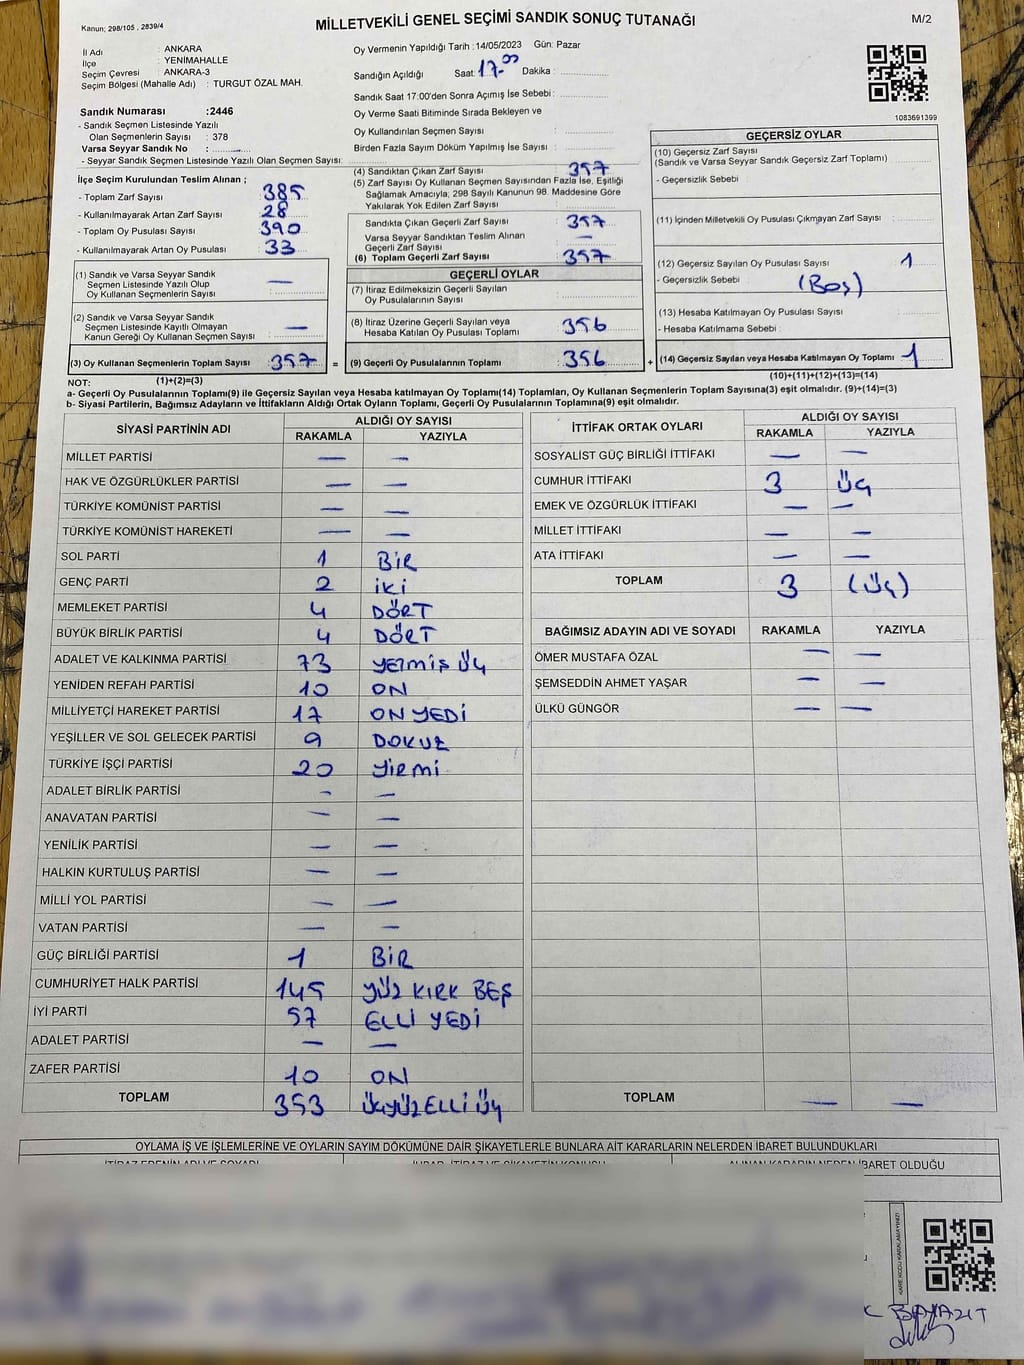 Kanun; 298/105 , 2839/4
MİLLETVEKİLİ GENEL SEÇİMİ SANDIK SONUÇ TUTANAĞI
M/2
İl Adı : ANKARA
İlçe : YENİMAHALLE
Seçim Çevresi : ANKARA-3
Seçim Bölgesi (Mahalle Adı) : TURGUT ÖZAL MAH.
Sandık Numarası :2446
- Sandık Seçmen Listesinde Yazılı
Olan Seçmenlerin Sayısı : 378
Varsa Seyyar Sandık No :
- Seyyar Sandık Seçmen Listesinde Yazılı Olan Seçmen Sayısı:
Oy Vermenin Yapıldığı Tarih : 14/05/2023 Gün: Pazar
Sandığın Açıldığı Saat: 17.00 Dakika :
Sandık Saat 17:00'den Sonra Açımış İse Sebebi :
Oy Verme Saati Bitiminde Sırada Bekleyen ve
Oy Kullandırılan Seçmen Sayısı :
Birden Fazla Sayım Döküm Yapılmış İse Sayısı :
1083691399
İlçe Seçim Kurulundan Teslim Alınan ;
- Toplam Zarf Sayısı : 385
- Kullanılmayarak Artan Zarf Sayısı : 28
- Toplam Oy Pusulası Sayısı : 390
- Kullanılmayarak Artan Oy Pusulası : 33
(1) Sandık ve Varsa Seyyar Sandık
Seçmen Listesinde Yazılı Olup
Oy Kullanan Seçmenlerin Sayısı : —
(2) Sandık ve Varsa Seyyar Sandık
Seçmen Listesinde Kayıtlı Olmayan
Kanun Gereği Oy Kullanan Seçmen Sayısı : —
(3) Oy Kullanan Seçmenlerin Toplam Sayısı : 357 =
(4) Sandıktan Çıkan Zarf Sayısı : 357
(5) Zarf Sayısı Oy Kullanan Seçmen Sayısından Fazla İse, Eşitliği
Sağlamak Amacıyla; 298 Sayılı Kanunun 98. Maddesine Göre
Yakılarak Yok Edilen Zarf Sayısı :
Sandıkta Çıkan Geçerli Zarf Sayısı : 357
Varsa Seyyar Sandıktan Teslim Alınan
Geçerli Zarf Sayısı : —
(6) Toplam Geçerli Zarf Sayısı : 357
GEÇERLİ OYLAR
(7) İtiraz Edilmeksizin Geçerli Sayılan
Oy Pusulalarının Sayısı :
(8) İtiraz Üzerine Geçerli Sayılan veya
Hesaba Katılan Oy Pusulası Toplamı : 356
(9) Geçerli Oy Pusulalarının Toplamı : 356 +
GEÇERSİZ OYLAR
(10) Geçersiz Zarf Sayısı
(Sandık ve Varsa Seyyar Sandık Geçersiz Zarf Toplamı) :
- Geçersizlik Sebebi :
(11) İçinden Milletvekili Oy Pusulası Çıkmayan Zarf Sayısı :
(12) Geçersiz Sayılan Oy Pusulası Sayısı : 1
- Geçersizlik Sebebi : (Boş)
(13) Hesaba Katılmayan Oy Pusulası Sayısı :
- Hesaba Katılmama Sebebi :
(14) Geçersiz Sayılan veya Hesaba Katılmayan Oy Toplamı : 1
(10)+(11)+(12)+(13)=(14)
NOT: (1)+(2)=(3)
a- Geçerli Oy Pusulalarının Toplamı(9) ile Geçersiz Sayılan veya Hesaba katılmayan Oy Toplamı(14) Toplamları, Oy Kullanan Seçmenlerin Toplam Sayısına(3) eşit olmalıdır. (9)+(14)=(3)
b- Siyasi Partilerin, Bağımsız Adayların ve İttifakların Aldığı Ortak Oyların Toplamı, Geçerli Oy Pusulalarının Toplamına(9) eşit olmalıdır.
SİYASİ PARTİNİN ADI ALDIĞI OY SAYISI
RAKAMLA YAZIYLA
MİLLET PARTİSİ — —
HAK VE ÖZGÜRLÜKLER PARTİSİ — —
TÜRKİYE KOMÜNİST PARTİSİ — —
TÜRKİYE KOMÜNİST HAREKETİ — —
SOL PARTİ 1 BİR
GENÇ PARTİ 2 İKİ
MEMLEKET PARTİSİ 4 DÖRT
BÜYÜK BİRLİK PARTİSİ 4 DÖRT
ADALET VE KALKINMA PARTİSİ 73 YETMİŞ ÜÇ
YENİDEN REFAH PARTİSİ 10 ON
MİLLİYETÇİ HAREKET PARTİSİ 17 ON YEDİ
YEŞİLLER VE SOL GELECEK PARTİSİ 9 DOKUZ
TÜRKİYE İŞÇİ PARTİSİ 20 YİRMİ
ADALET BİRLİK PARTİSİ — —
ANAVATAN PARTİSİ — —
YENİLİK PARTİSİ — —
HALKIN KURTULUŞ PARTİSİ — —
MİLLİ YOL PARTİSİ — —
VATAN PARTİSİ — —
GÜÇ BİRLİĞİ PARTİSİ 1 BİR
CUMHURİYET HALK PARTİSİ 145 YÜZ KIRK BEŞ
İYİ PARTİ 57 ELLİ YEDİ
ADALET PARTİSİ — —
ZAFER PARTİSİ 10 ON
TOPLAM 353 ÜÇYÜZ ELLİ ÜÇ
İTTİFAK ORTAK OYLARI ALDIĞI OY SAYISI
RAKAMLA YAZIYLA
SOSYALİST GÜÇ BİRLİĞİ İTTİFAKI — —
CUMHUR İTTİFAKI 3 ÜÇ
EMEK VE ÖZGÜRLÜK İTTİFAKI — —
MİLLET İTTİFAKI — —
ATA İTTİFAKI — —
TOPLAM 3 (ÜÇ)
BAĞIMSIZ ADAYIN ADI VE SOYADI RAKAMLA YAZIYLA
ÖMER MUSTAFA ÖZAL — —
ŞEMSEDDİN AHMET YAŞAR — —
ÜLKÜ GÜNGÖR — —
TOPLAM — —
OYLAMA İŞ VE İŞLEMLERİNE VE OYLARIN SAYIM DÖKÜMÜNE DAİR ŞİKAYETLERLE BUNLARA AİT KARARLARIN NELERDEN İBARET BULUNDUKLARI
İTİRAZ EDENİN ADI VE SOYADI İHBAR, İTİRAZ VE ŞİKAYETİN KONUSU ALINAN KARARIN NEDEN İBARET OLDUĞU
KARE KODU KARALAMAYINIZ!
BAYAZIT